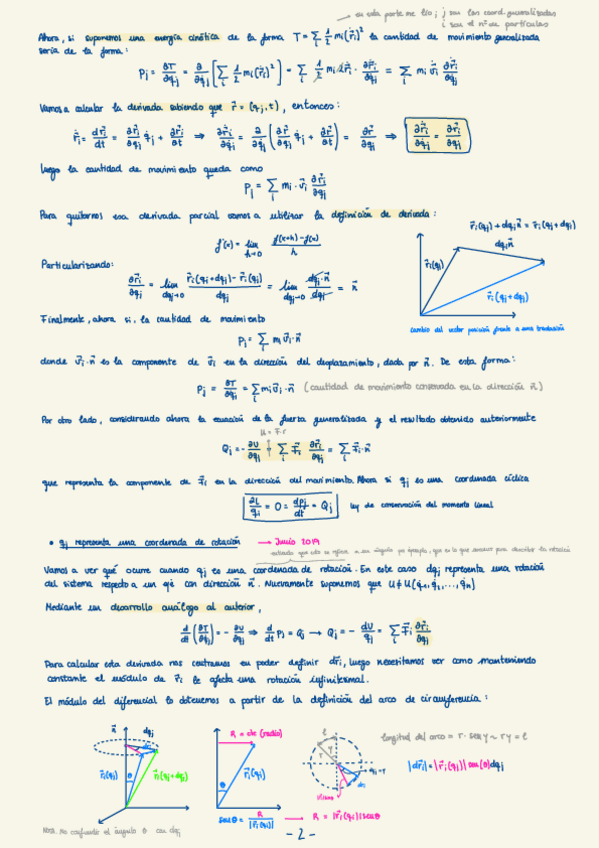 en esta parte me lío; j son las coord. generalizadas
i son el nº de partículas
Ahora, si suponemos una energía cinética de la forma T = Σ_i 1/2 m_i (ṙ_i)² la cantidad de movimiento generalizada
sería de la forma:
P_j = ∂T/∂q̇_j = ∂/∂q̇_j [Σ_i 1/2 m_i (ṙ_i)²] = Σ_i 1/2 m_i 2ṙ_i · ∂ṙ_i/∂q̇_j = Σ_i m_i v⃗_i ∂ṙ_i/∂q̇_j
Vamos a calcular la derivada sabiendo que r⃗ = (q_j, t), entonces:
ṙ_i = dr⃗_i/dt = ∂r⃗_i/∂q_j q̇_j + ∂r⃗_i/∂t ⇒ ∂ṙ_i/∂q̇_j = ∂/∂q̇_j (∂r⃗/∂q_j q̇_j + ∂r⃗_i/∂t) = ∂r⃗/∂q_j ⇒ ∂ṙ_i/∂q̇_j = ∂r⃗_i/∂q_j
luego la cantidad de movimiento queda como
P_j = Σ_i m_i · v⃗_i ∂r⃗_i/∂q_j
Para quitarnos esa derivada parcial vamos a utilizar la definición de derivada:
f'(x) = lim_{h→0} f(x+h)-f(x)/h
r⃗_i(q_j) + dq_j n⃗ = r⃗_i(q_j + dq_j)
dq_j n⃗
r⃗_i(q_j)
r⃗_i(q_j + dq_j)
cambio del vector posición frente a una traslación
Particularizando:
∂r⃗_i/∂q_j = lim_{dq_j→0} r⃗_i(q_j + dq_j) - r⃗_i(q_j)/dq_j = lim_{dq_j→0} dq_j · n⃗/dq_j = n⃗
Finalmente, ahora si, la cantidad de movimiento
P_j = Σ_i m_i v⃗_i · n⃗
donde v⃗_i · n⃗ es la componente de v⃗_i en la dirección del desplazamiento, dada por n⃗. De esta forma:
P_j = ∂T/∂q̇_j = Σ_i m_i v⃗_i · n⃗ (cantidad de movimiento conservada en la dirección n⃗)
Por otro lado, considerando ahora la ecuación de la fuerza generalizada y el resultado obtenido anteriormente
U = F·r
Q_j = - ∂U/∂q_j = Σ_i F⃗_i ∂r⃗_i/∂q_j = Σ_i F⃗_i · n⃗
que representa la componente de F⃗_i en la dirección del movimiento. Ahora si q_j es una coordenada cíclica
∂L/q_j = 0 = dp_j/dt = Q_j ley de conservación del momento lineal
• q_j representa una coordenada de rotación → Junio 2019
Vamos a ver qué ocurre cuando q_j es una coordenada de rotación. En este caso dq_j representa una rotación
del sistema respecto a un eje con dirección n⃗. Nuevamente suponemos que U ≠ U(q̇_1, q̇_2, ..., q̇_n)
Mediante un desarrollo análogo al anterior,
d/dt (∂T/∂q̇_j) = - ∂U/∂q_j ⇒ d/dt P_j = Q_j → Q_j = - dU/q_j = Σ_i F⃗_i ∂r⃗_i/∂q_j
Para calcular esta derivada nos centramos en poder definir dr⃗_i, luego necesitamos ver como manteniendo
constante el módulo de r⃗_i le afecta una rotación infinitesimal.
El módulo del diferencial lo obtenemos a partir de la definición del arco de circunferencia:
n⃗
dq_j
dr_i
r⃗_i(q_j)
θ
r⃗_i(q_j + dq_j)
R = cte (radio)
θ
r⃗_i(q_j)
senθ = R/|r⃗_i(q_j)| → R = |r⃗_i(q_j)| senθ
longitud del arco = r · sen γ ∼ r γ = l
|dr⃗_i| = |r⃗_i(q_j)| sen(θ) dq_j
NOTA: No confundir el ángulo θ con dq_j
- 2 -